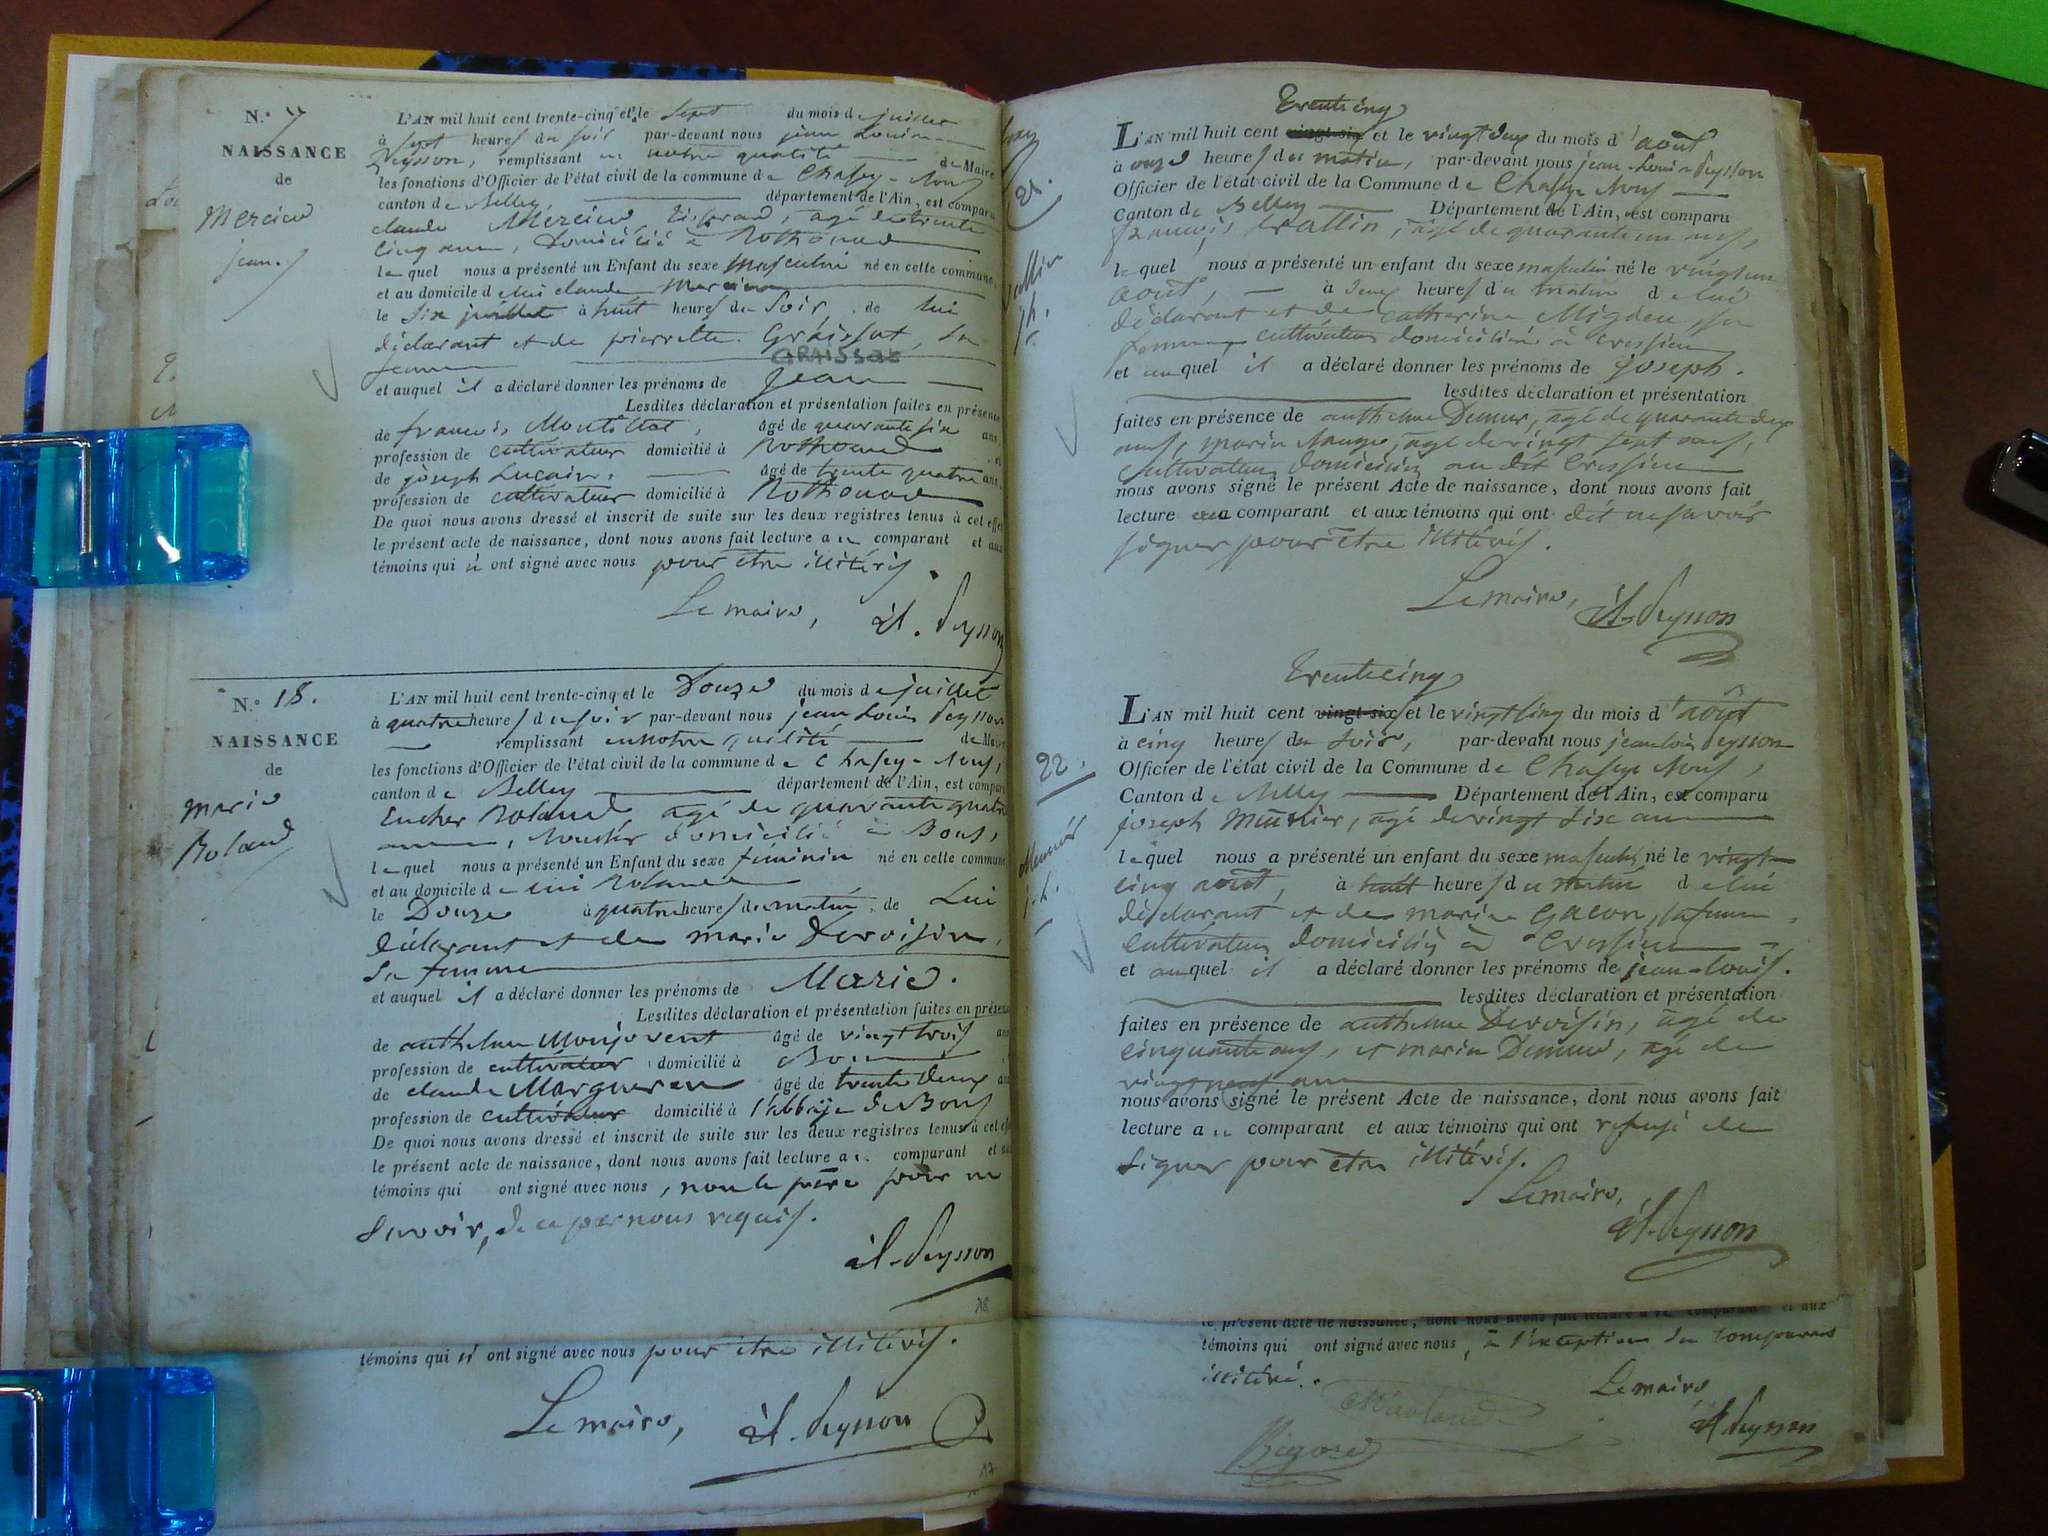 N.° 7
NAISSANCE
de
Mercier
jean.
L'AN mil huit cent trente-cinq et le Sept du mois de juillet
à sept heures du soir par-devant nous jean Louis
Peysson, remplissant en notre qualité de Maire
les fonctions d'Officier de l'état civil de la commune de Chazey-Bons
canton de Belley, département de l'Ain, est comparu
claude Mercier, Tisserand, agé de trente
cinq ans, domicilié à Rothonod
lequel nous a présenté un Enfant du sexe masculin né en cette commune,
et au domicile de lui claude Mercier
le six juillet à huit heures du Soir, de lui
déclarant et de pierrette Graissot, sa
GRAISSOT
femme
et auquel il a déclaré donner les prénoms de jean
Lesdites déclaration et présentation faites en présence
de francois Montillet, âgé de quarante six ans,
profession de cultivateur domicilié à Rothonod
de joseph Lucain, âgé de trente quatre ans,
profession de cultivateur domicilié à Rothonod
De quoi nous avons dressé et inscrit de suite sur les deux registres tenus à cet effet
le présent acte de naissance, dont nous avons fait lecture au comparant et aux
témoins qui n' ont signé avec nous pour être illitérés.
Le maire, Peysson
N.° 18.
NAISSANCE
de
marie
Roland
L'AN mil huit cent trente-cinq et le Douze du mois de juillet
à quatre heures du soir par-devant nous jean Louis Peysson
remplissant en notre qualité de Maire
les fonctions d'Officier de l'état civil de la commune de Chazey-Bons,
canton de Belley département de l'Ain, est comparu
Eucher Roland, agé de quarante quatre
ans, domicilié à Bons,
lequel nous a présenté un Enfant du sexe féminin né en cette commune
et au domicile de lui Roland
le Douze à quatre heures du matin, de Lui
Déclarant et de marie Devoisin,
sa femme
et auquel il a déclaré donner les prénoms de Marie.
Lesdites déclaration et présentation faites en présence
de anthelme Monjovent âgé de vingt trois ans
profession de cultivateur domicilié à Bons
de claude Margueron âgé de trente deux ans
profession de cultivateur domicilié à l'abbaye de Bons
De quoi nous avons dressé et inscrit de suite sur les deux registres tenus à cet effet
le présent acte de naissance, dont nous avons fait lecture au comparant et aux
témoins qui ont signé avec nous, non le père pour ne
savoir, de ce par nous requis.
Peysson
18
témoins qui n' ont signé avec nous pour être illitérés.
Le maire, Peysson
17
21.
Trente cinq
L'AN mil huit cent vingt-six et le vingt deux du mois d'août
à onze heures du matin, par-devant nous jean-Louis Peysson
Officier de l'état civil de la Commune de Chazey Bons
Canton de Belley Département de l'Ain, est comparu
françois Vallin, agé de quarante un ans,
lequel nous a présenté un enfant du sexe masculin né le vingt un
août, à deux heures du matin de lui
déclarant et de catherine Migdeu, sa
femme, cultivateurs domiciliés à Cressieu
et auquel il a déclaré donner les prénoms de joseph.
lesdites déclaration et présentation
faites en présence de anthelme Demur, agé de quarante deux
ans, marin, agé de vingt sept ans,
cultivateurs domiciliés au dit Cressieu
nous avons signé le présent Acte de naissance, dont nous avons fait
lecture au comparant et aux témoins qui ont dit ne savoir
signer pour être illitérés.
Le maire,
Peysson
22.
Trente cinq
L'AN mil huit cent vingt-six et le vingt cinq du mois d'août
à cinq heures du soir, par-devant nous jean louis Peysson
Officier de l'état civil de la Commune de Chazey Bons,
Canton de Belley Département de l'Ain, est comparu
joseph Munier, agé de vingt six ans
lequel nous a présenté un enfant du sexe masculin né le vingt
cinq août, à huit heures du matin de lui
déclarant et de marie Gacon, sa femme,
cultivateurs domiciliés à Cressieu
et auquel il a déclaré donner les prénoms de jean-Louis.
lesdites déclaration et présentation
faites en présence de anthelme Devoisin, agé de
cinquante ans, et marin Demur, agé de
vingt neuf ans
nous avons signé le présent Acte de naissance, dont nous avons fait
lecture au comparant et aux témoins qui ont refusé de
signer pour être illitérés.
Le maire,
Peysson
le présent acte de naissance, dont nous avons fait lecture au comparant et aux
témoins qui ont signé avec nous, à l'exception du comparant
illitéré.
Le maire,
Peysson